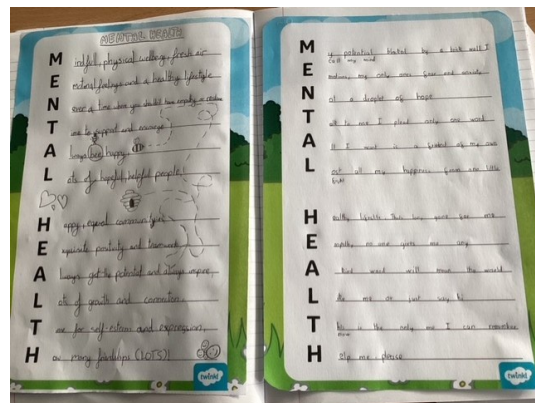 MENTAL HEALTH
M indful, physical wellbeing, fresh air
E motional feelings and a healthy lifestyle
N ever a time when you should have
T ime to support and manage
A lways bee happy,
L ots of hopeful, helpful people!
H appy, equal
E xquisite positivity and
A lways got the potential and always inspire,
L ots of growth and connection,
T ime for self-esteem and expression,
H ow many friendships (LOTS)!
twinkl
M y potential blocked by a brick wall I
call my mind
E my only ones fear and anxiety
N ot a droplet of hope
T to me I plead only one word
A ll I want is a friend of my own
L ost all my happiness
H ealthy lifestyle this has gone for me
E mpathy no one gives me any
A kind word will mean the world
L ike me or just say hi
T his is the only me I can remember
now
H elp me please
twinkl